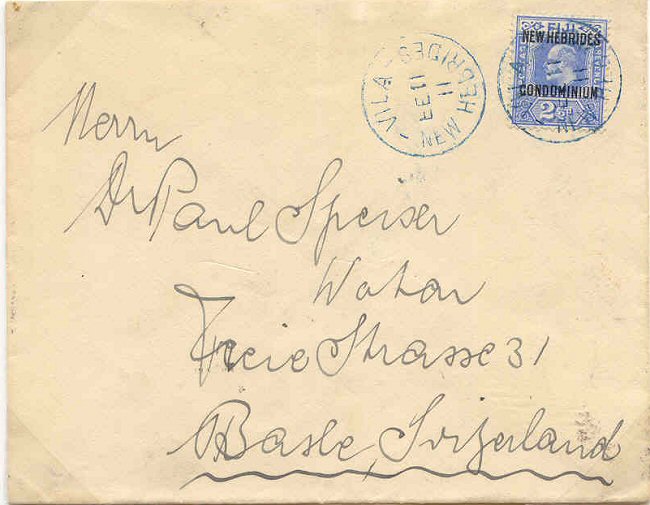 FIJI
NEW HEBRIDES
CONDOMINIUM
2½d
VILA
NEW HEBRIDES
11
Herrn
Dr Paul Speiser
Notar
Freie Strasse 31
Basle, Switzerland